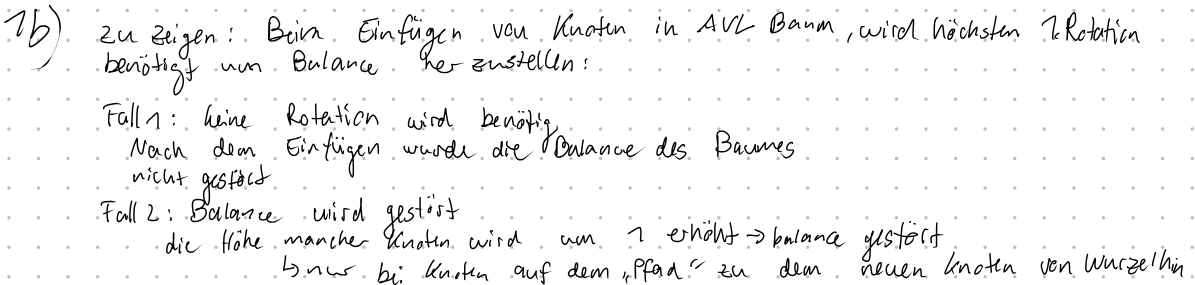 1b) zu zeigen: Beim Einfügen von Knoten in AVL Baum, wird höchsten 1 Rotation
benötigt um Balance her zustellen:
Fall 1: keine Rotation wird benötig
Nach dem Einfügen wurde die Balance des Baumes
nicht gestört
Fall 2: Balance wird gestört
die Höhe mancher Knoten wird um 1 erhöht → balance gestört
↳ nur bei Knoten auf dem „Pfad“ zu dem neuen Knoten von Wurzel hin